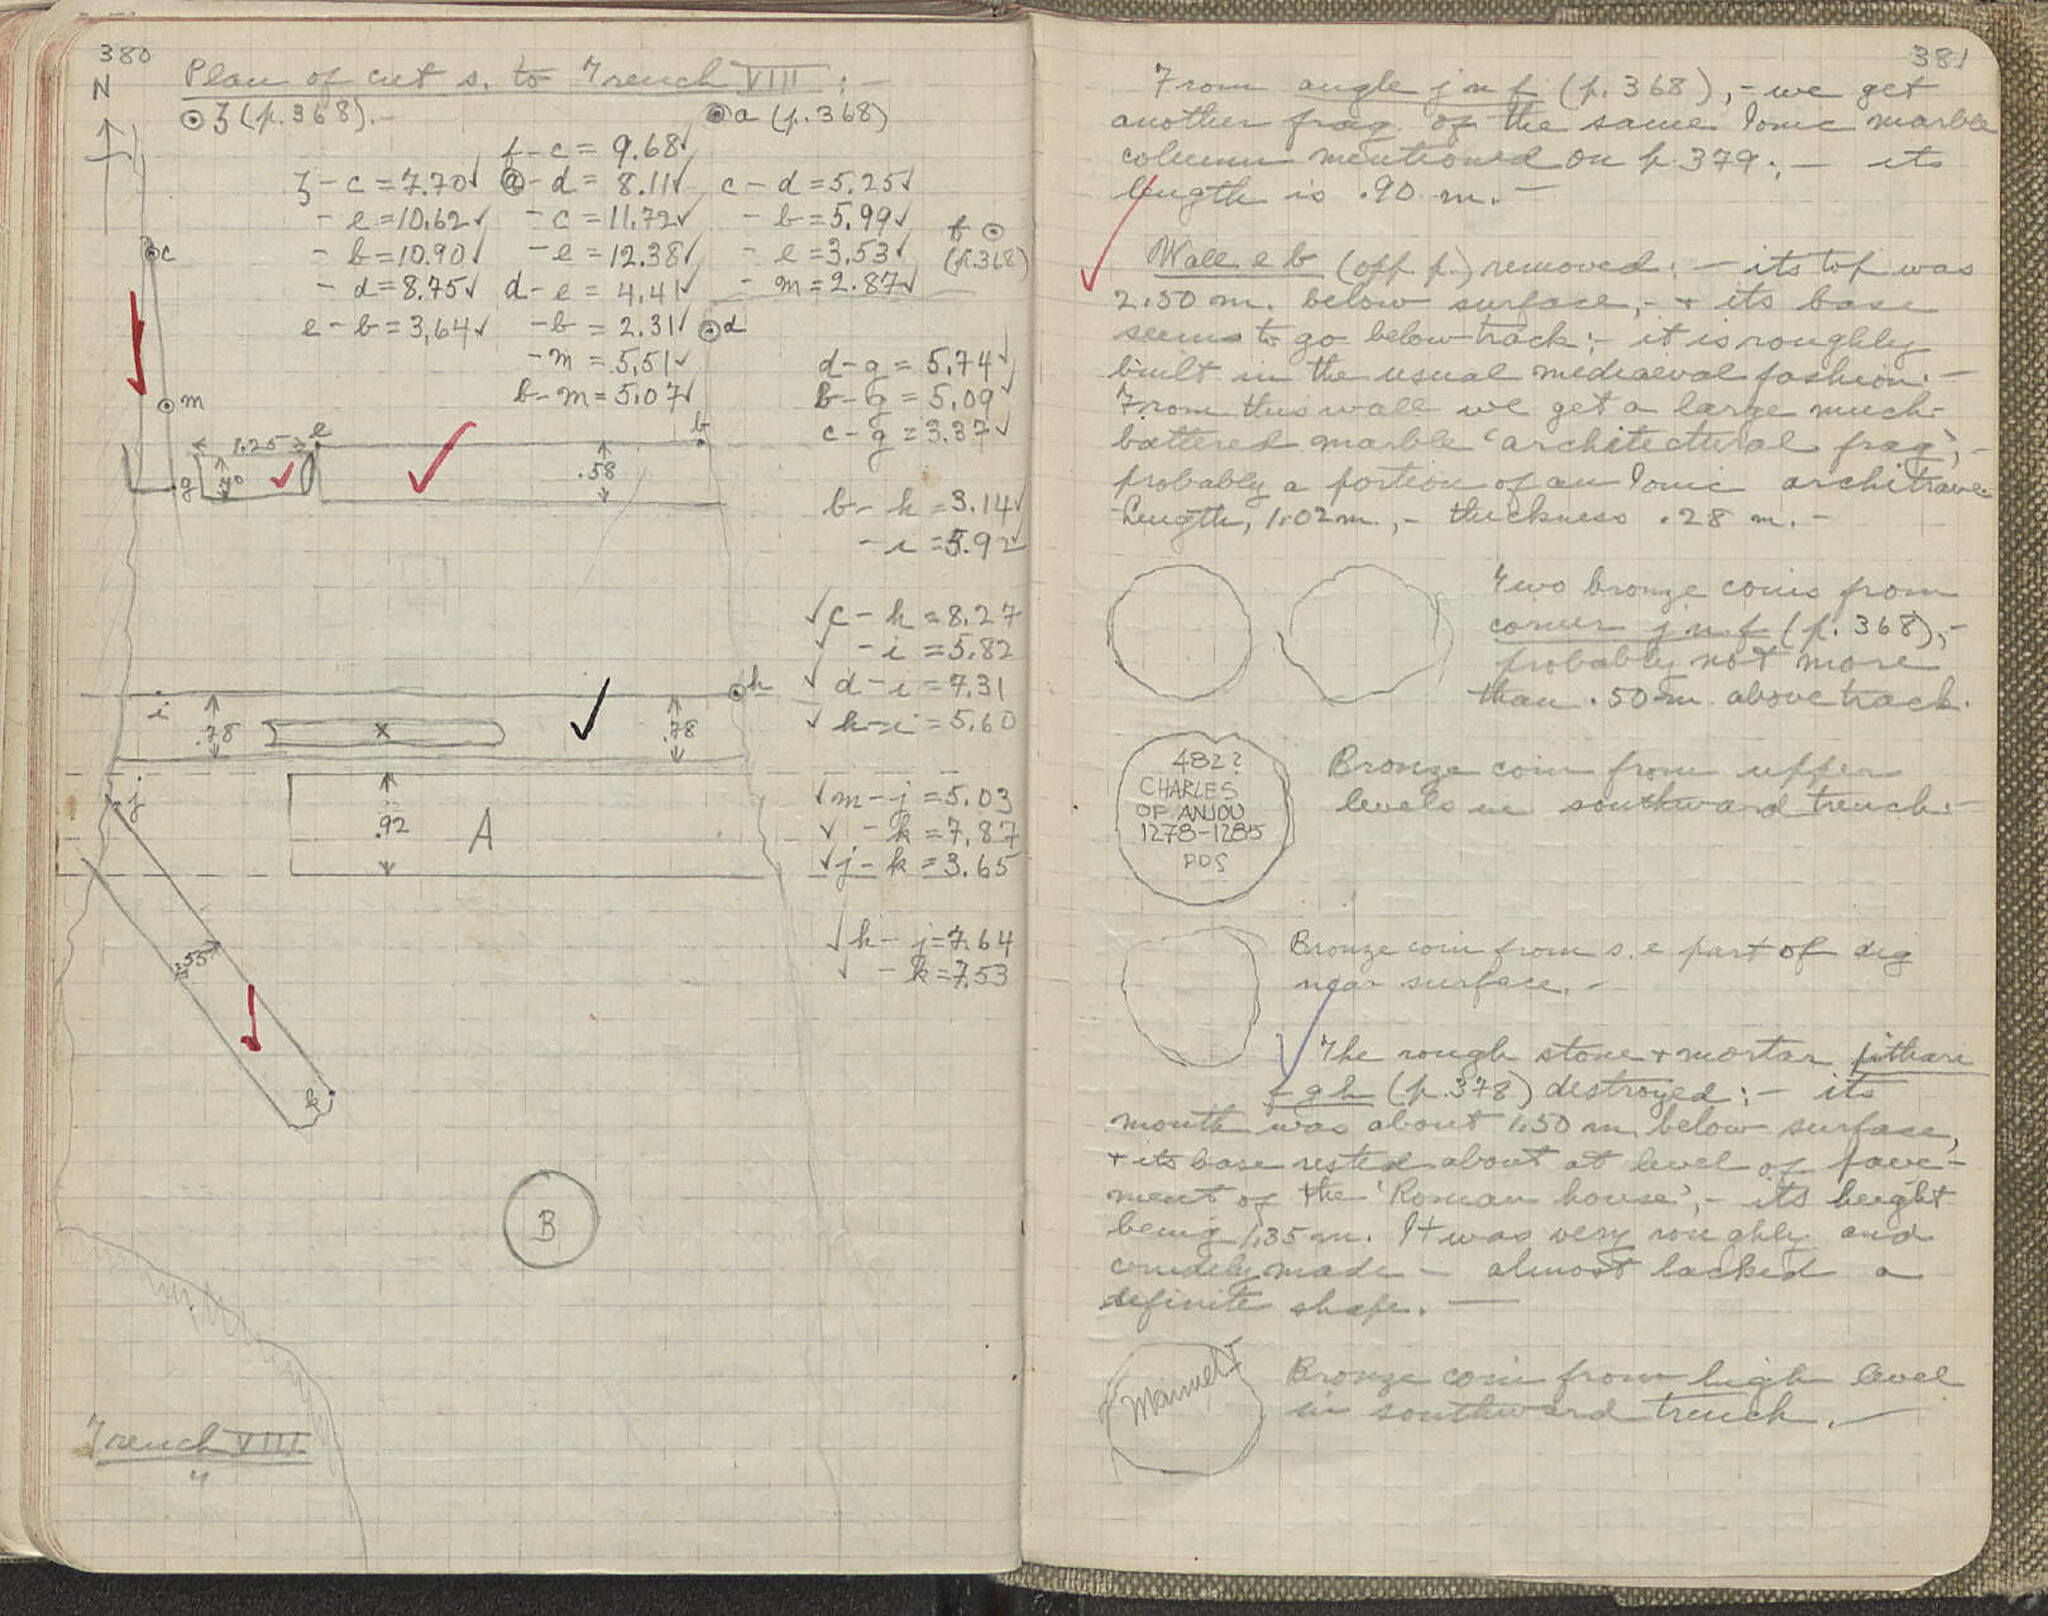 380
N
Plan of cut s. to Trench VIII : —
ζ (p. 368). —
a (p. 368)
f - c = 9.68 ✓
ζ - c = 7.70 ✓
- e = 10.62 ✓
- b = 10.90 ✓
- d = 8.75 ✓
e - b = 3,64 ✓
a - d = 8.11 ✓
- c = 11.72 ✓
- e = 12.38 ✓
d - e = 4,41 ✓
- b = 2.31 ✓
- m = 5,51 ✓
b - m = 5.07 ✓
c - d = 5.25 ✓
- b = 5.99 ✓
- e = 3,53 ✓
- m = 2.87 ✓
f
(p. 368)
c
d
m
d - g = 5,74 ✓
b - g = 5,09 ✓
c - g = 3.37 ✓
1.25
e
b
g
.40
.58
b - h = 3.14 ✓
- i = 5.92 ✓
✓ c - h = 8.27
✓ - i = 5.82
✓ d - i = 7,31
✓ h - i = 5,60
h
i
.78
x
.78
✓ m - j = 5,03
✓ - k = 7,87
✓ j - k = 3.65
j
.92
A
✓ h - j = 7.64
✓ - k = 7,53
.55
k
B
Trench VIII
"
381
From angle j n f (p. 368), - we get
another frag. of the same Ionic marble
column mentioned on p. 379 ; — its
length is .90 m. —
Wall e b (opp. p.) removed : — its top was
2.50 m. below surface, - + its base
seems to go below track ; - it is roughly
built in the usual mediaeval fashion. —
From this wall we get a large much-
battered marble 'architectural frag', -
probably a portion of an Ionic architrave.
Length, 1.02 m., - thickness .28 m. —
Two bronze coins from
corner j n f (p. 368), -
probably not more
than .50 m. above track.
482?
CHARLES
OF ANJOU
1278-1285
PDS
Bronze coin from upper
levels in southward trench. —
Bronze coin from s. e part of dig
near surface. —
The rough stone + mortar pithari
f g h (p. 378) destroyed ; — its
mouth was about 1.50 m. below surface,
+ its base rested about at level of pave-
ment of the 'Roman house', - its height
being 1.35 m. It was very roughly and
crudely made — almost lacked a
definite shape. —
Manuel I
Bronze coin from high level
in southward trench. —